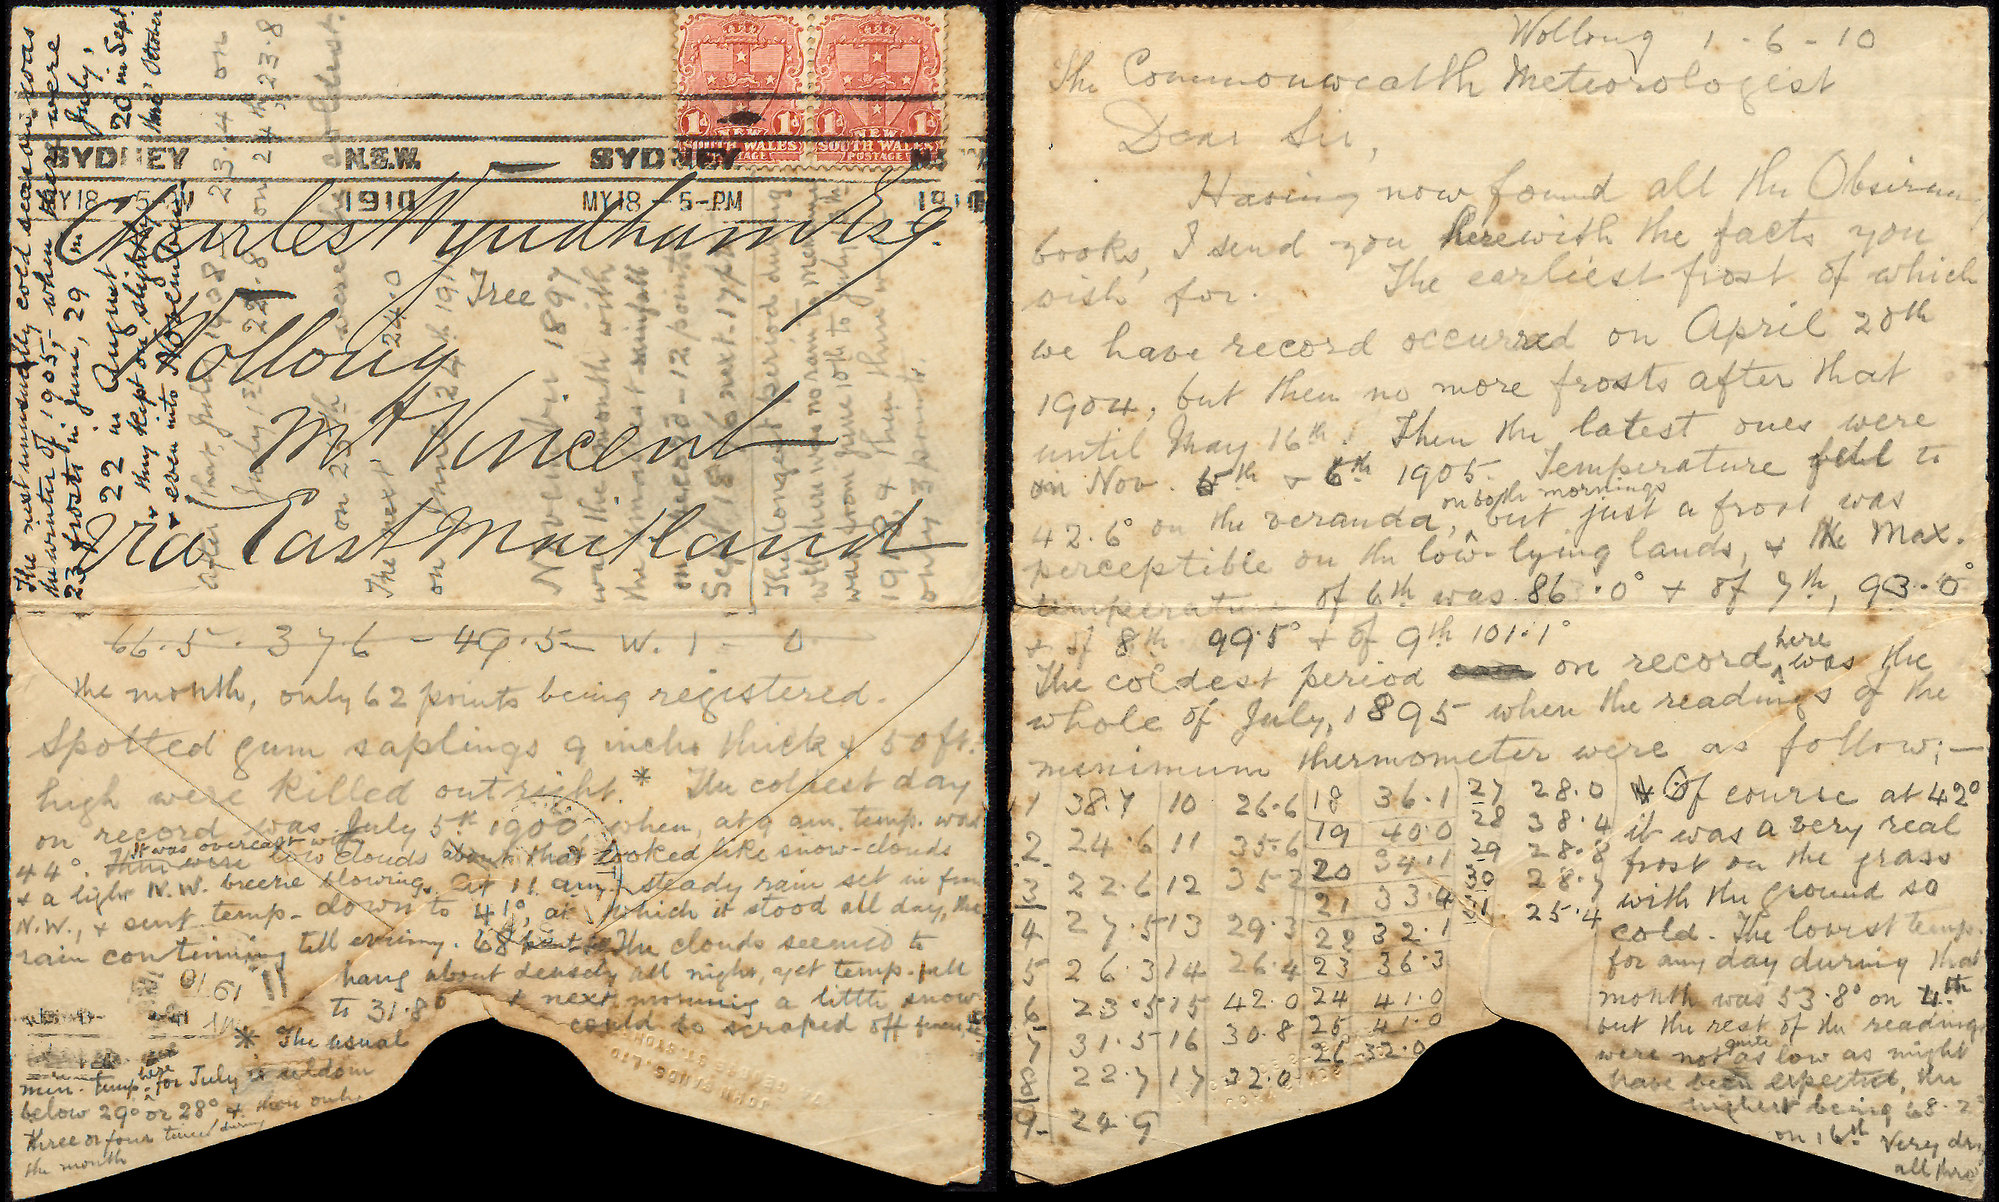 Wollong 1-6-10
The Commonwealth Meteorologist
Dear Sir,
Having now found all the Observing
books, I send you herewith the facts you
wish for. The earliest frost of which
we have record occurred on April 20th
1904, but then no more frosts after that
until May 16th. Then the latest ones were
on Nov. 5th & 6th 1905. Temperature fell to
42.6° on the veranda, on both mornings but just a frost was
perceptible on the low-lying lands, & the Max.
temperature of 6th was 86.0° & of 7th, 93.0°
& of 8th 99.5° & of 9th 101.1°
The coldest period on record here was the
whole of July, 1895 when the readings of the
minimum thermometer were as follow;—
1 38.7 10 26.6 18 36.1 27 28.0
2 24.6 11 35.6 19 40.0 28 38.4
3 22.6 12 35.2 20 34.1 29 28.8
4 27.5 13 29.3 21 33.4 30 28.7
5 26.3 14 26.4 22 32.1 31 25.4
6 23.5 15 42.0 23 36.3
7 31.5 16 30.8 24 41.0
8 22.7 17 32.0 25 41.0
9 24.9 26 32.0
* Of course at 42°
it was a very real
frost on the grass
with the ground so
cold. The lowest temp.
for any day during that
month was 53.8° on 4th
but the rest of the readings
were not quite as low as might
have been expected, the
highest being 68.2°
on 16th Very dry
all thro'
the month, only 62 points being registered.
Spotted gum saplings 9 inches thick & 50ft.
high were killed outright. * The coldest day
on record was July 5th 1900, when, at 9 am. temp. was
44°. It was overcast with low clouds about that looked like snow-clouds
& a light N.W. breeze blowing. At 11 am. steady rain set in from
N.W., & sent temp. down to 41°, at which it stood all day, the
rain continuing till evening. 68 points The clouds seemed to
hang about densely all night, yet temp. fell
to 31.8° & next morning a little snow
could be scraped off
* The usual
min. temp. here for July is seldom
below 29° or 28° & then only
three or four times during
the month
66.5 . 376 - 49.5 W. 1 - 0
SYDNEY N.S.W. SYDNEY
MY 18 5-PM 1910 MY 18 - 5-PM 1910
1d NEW SOUTH WALES POSTAGE 1d
1d NEW SOUTH WALES POSTAGE 1d
Charles Wyndham Esq.
Wollong
Mt Vincent
via East Maitland
The next unusually cold season was
the winter of 1905, when there were
23 frosts in June, 29 in July,
22 in August 20 in Sept.
& they kept on slightly thro' October
& even into November
after that, July 1908 23.4 on
July 1st 22.8 on 24th 23.8
on 25th were the coldest.
The next 24.0
on June 24th 191
November 1897
was the month with
the smallest rainfall
on record - 12 points
Sept 1896 next. 17 pts
The longest period during
which there was no rain to measure
was from June 10th to July
1908, & then
only 3 points.
Tree